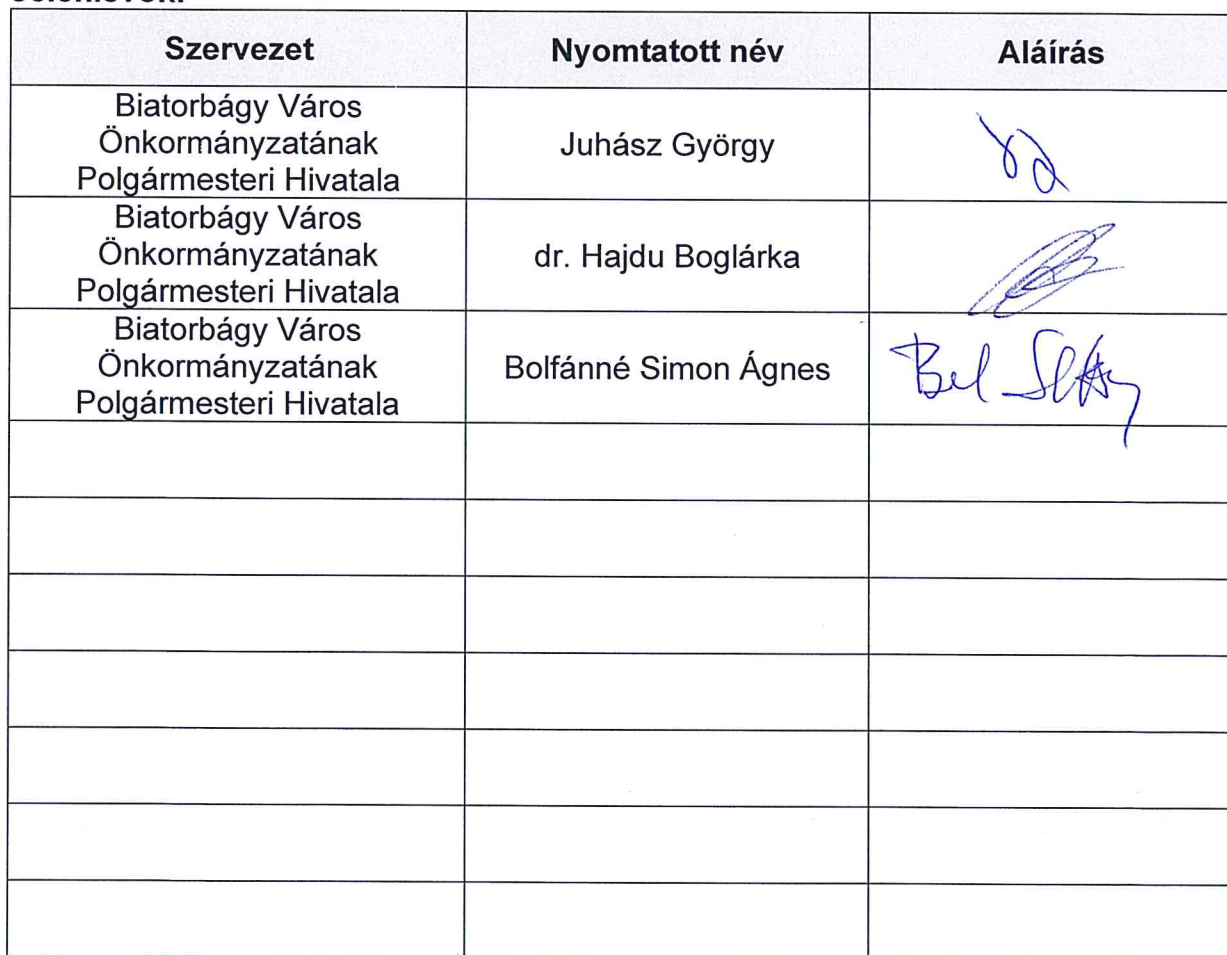 Szervezet Nyomtatott név Aláírás
Biatorbágy Város
Önkormányzatának
Polgármesteri Hivatala
Juhász György
Biatorbágy Város
Önkormányzatának
Polgármesteri Hivatala
dr. Hajdu Boglárka
Biatorbágy Város
Önkormányzatának
Polgármesteri Hivatala
Bolfánné Simon Ágnes